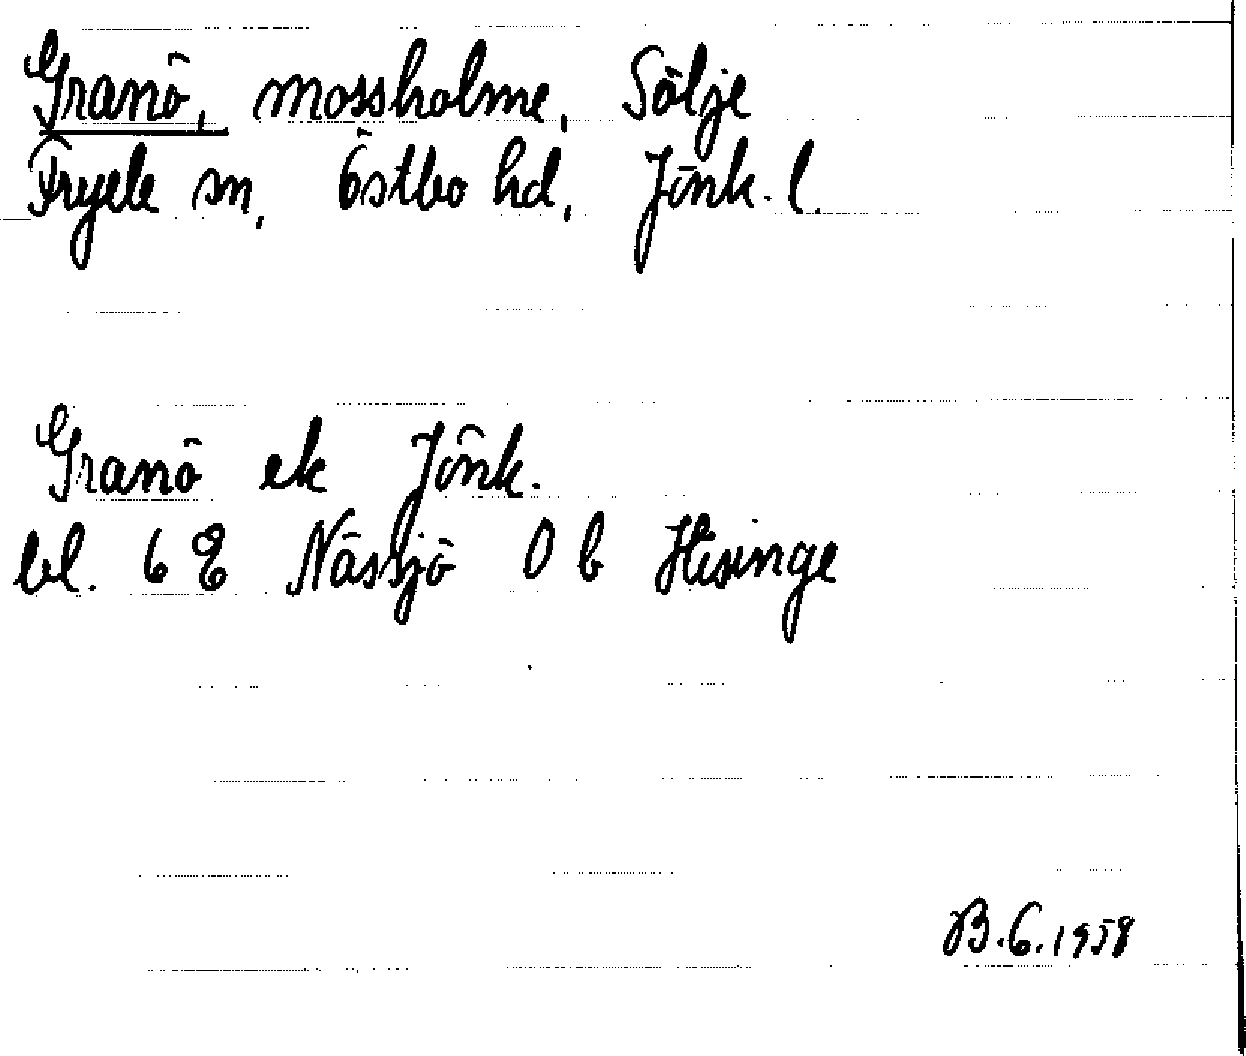 Granö, mossholme, Sölje
Fryele sn, Östbo hd, Jönk. l.
Granö ek Jönk.
bl. 6 E Nässjö 0 b Hisinge
B.G. 1958